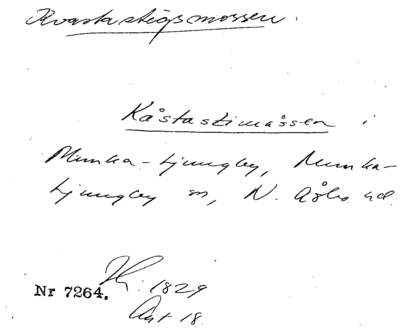 Kvastastigsmossen.
Kåstastimåssen i
Munka-Ljungby, Munka-
Ljungby sn, N. Åsbo hd.
1829
Nr 7264.
Akt 18.